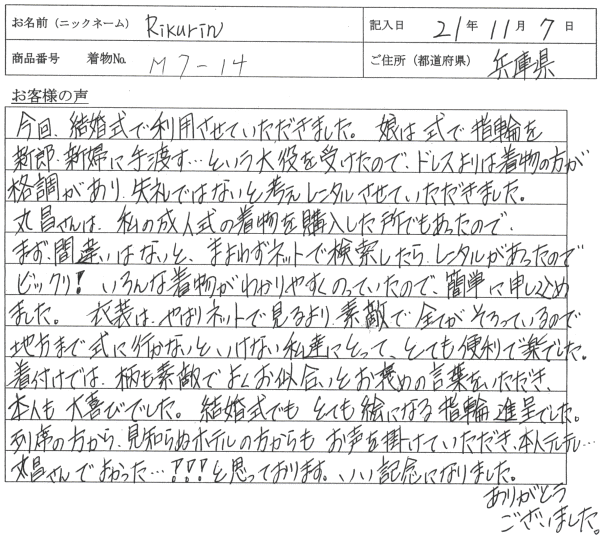 お名前（ニックネーム） Rikurin 記入日 21年11月7日
商品番号 着物No. M7-14 ご住所（都道府県） 兵庫県
お客様の声
今回、結婚式で利用させていただきました。 娘は式で指輪を
新郎、新婦に手渡す…という大役を受けたので、ドレスよりは着物の方が
格調があり、失礼ではないと考えレンタルさせていただきました。
丸昌さんは、私の成人式の着物を購入した所でもあったので、
まず、間違いはないと、まよわずネットで検索したら、レンタルがあったので
ビックリ！ いろんな着物がわかりやすくのっていたので、簡単に申し込め
ました。 衣装は、やはりネットで見るより、素敵で全てがそろっているので
地方まで式に行かないといけない私達にとって、とても便利で楽でした。
着付けでは、柄も素敵でよくお似合いとお褒めの言葉をいただき、
本人も大喜びでした。 結婚式でもとても絵になる指輪進呈でした。
列席の方から、見知らぬホテルの方からもお声を掛けていただき、本人テレテレ…
丸昌さんでよかった…!!!と思っております。いい記念になりました。
ありがとう
ございました。